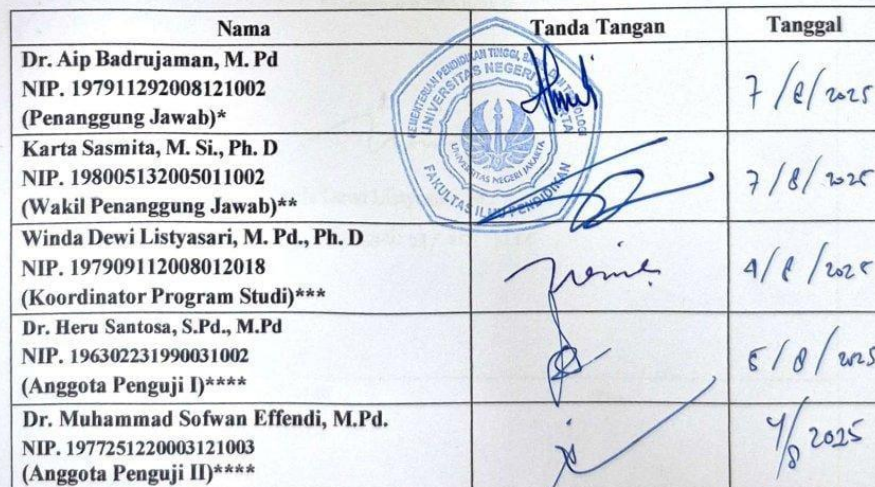 Nama Tanda Tangan Tanggal
Dr. Aip Badrujaman, M. Pd
NIP. 197911292008121002
(Penanggung Jawab)*
7/8/2025
Karta Sasmita, M. Si., Ph. D
NIP. 198005132005011002
(Wakil Penanggung Jawab)**
7/8/2025
Winda Dewi Listyasari, M. Pd., Ph. D
NIP. 197909112008012018
(Koordinator Program Studi)***
4/8/2025
Dr. Heru Santosa, S.Pd., M.Pd
NIP. 196302231990031002
(Anggota Penguji I)****
5/8/2025
Dr. Muhammad Sofwan Effendi, M.Pd.
NIP. 1977251220003121003
(Anggota Penguji II)****
4/8 2025
KEMENTERIAN PENDIDIKAN TINGGI,
UNIVERSITAS NEGERI
FAKULTAS ILMU PENDIDIKAN
UNIVERSITAS NEGERI JAKARTA